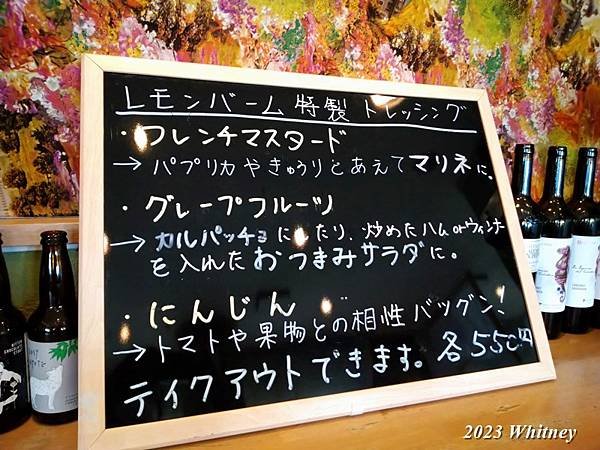 レモンバーム特製 ドレッシング
・フレンチマスタード
→ パプリカやきゅうりとあえてマリネに。
・グレープフルーツ
→ カルパッチョにしたり、炒めたハムorウィンナー
を入れたおつまみサラダに。
・にんじん
→ トマトや果物との相性バッグン!
テイクアウトできます。各550円
2023 Whitney